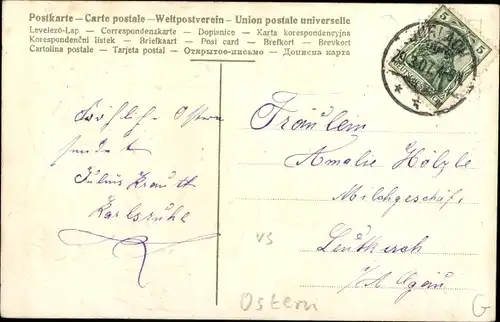 Postkarte – Carte postale – Weltpostverein – Union postale universelle
Levelező-Lap. — Correspondenzkarte — Dopisnice — Karta korespondencyjna
Korespondenční lístek — Briefkaart — Post card — Brefkort — Brevkort
Cartolina postale — Tarjeta postal — Открытое-письмо — Дописна карта
5 5
Fröhlich. Ostern
sendet
Julius Krauth
Karlsruhe
Fräulein
Amalie Hölzle
Milchgeschäft
Leutkirch
Ostern
G